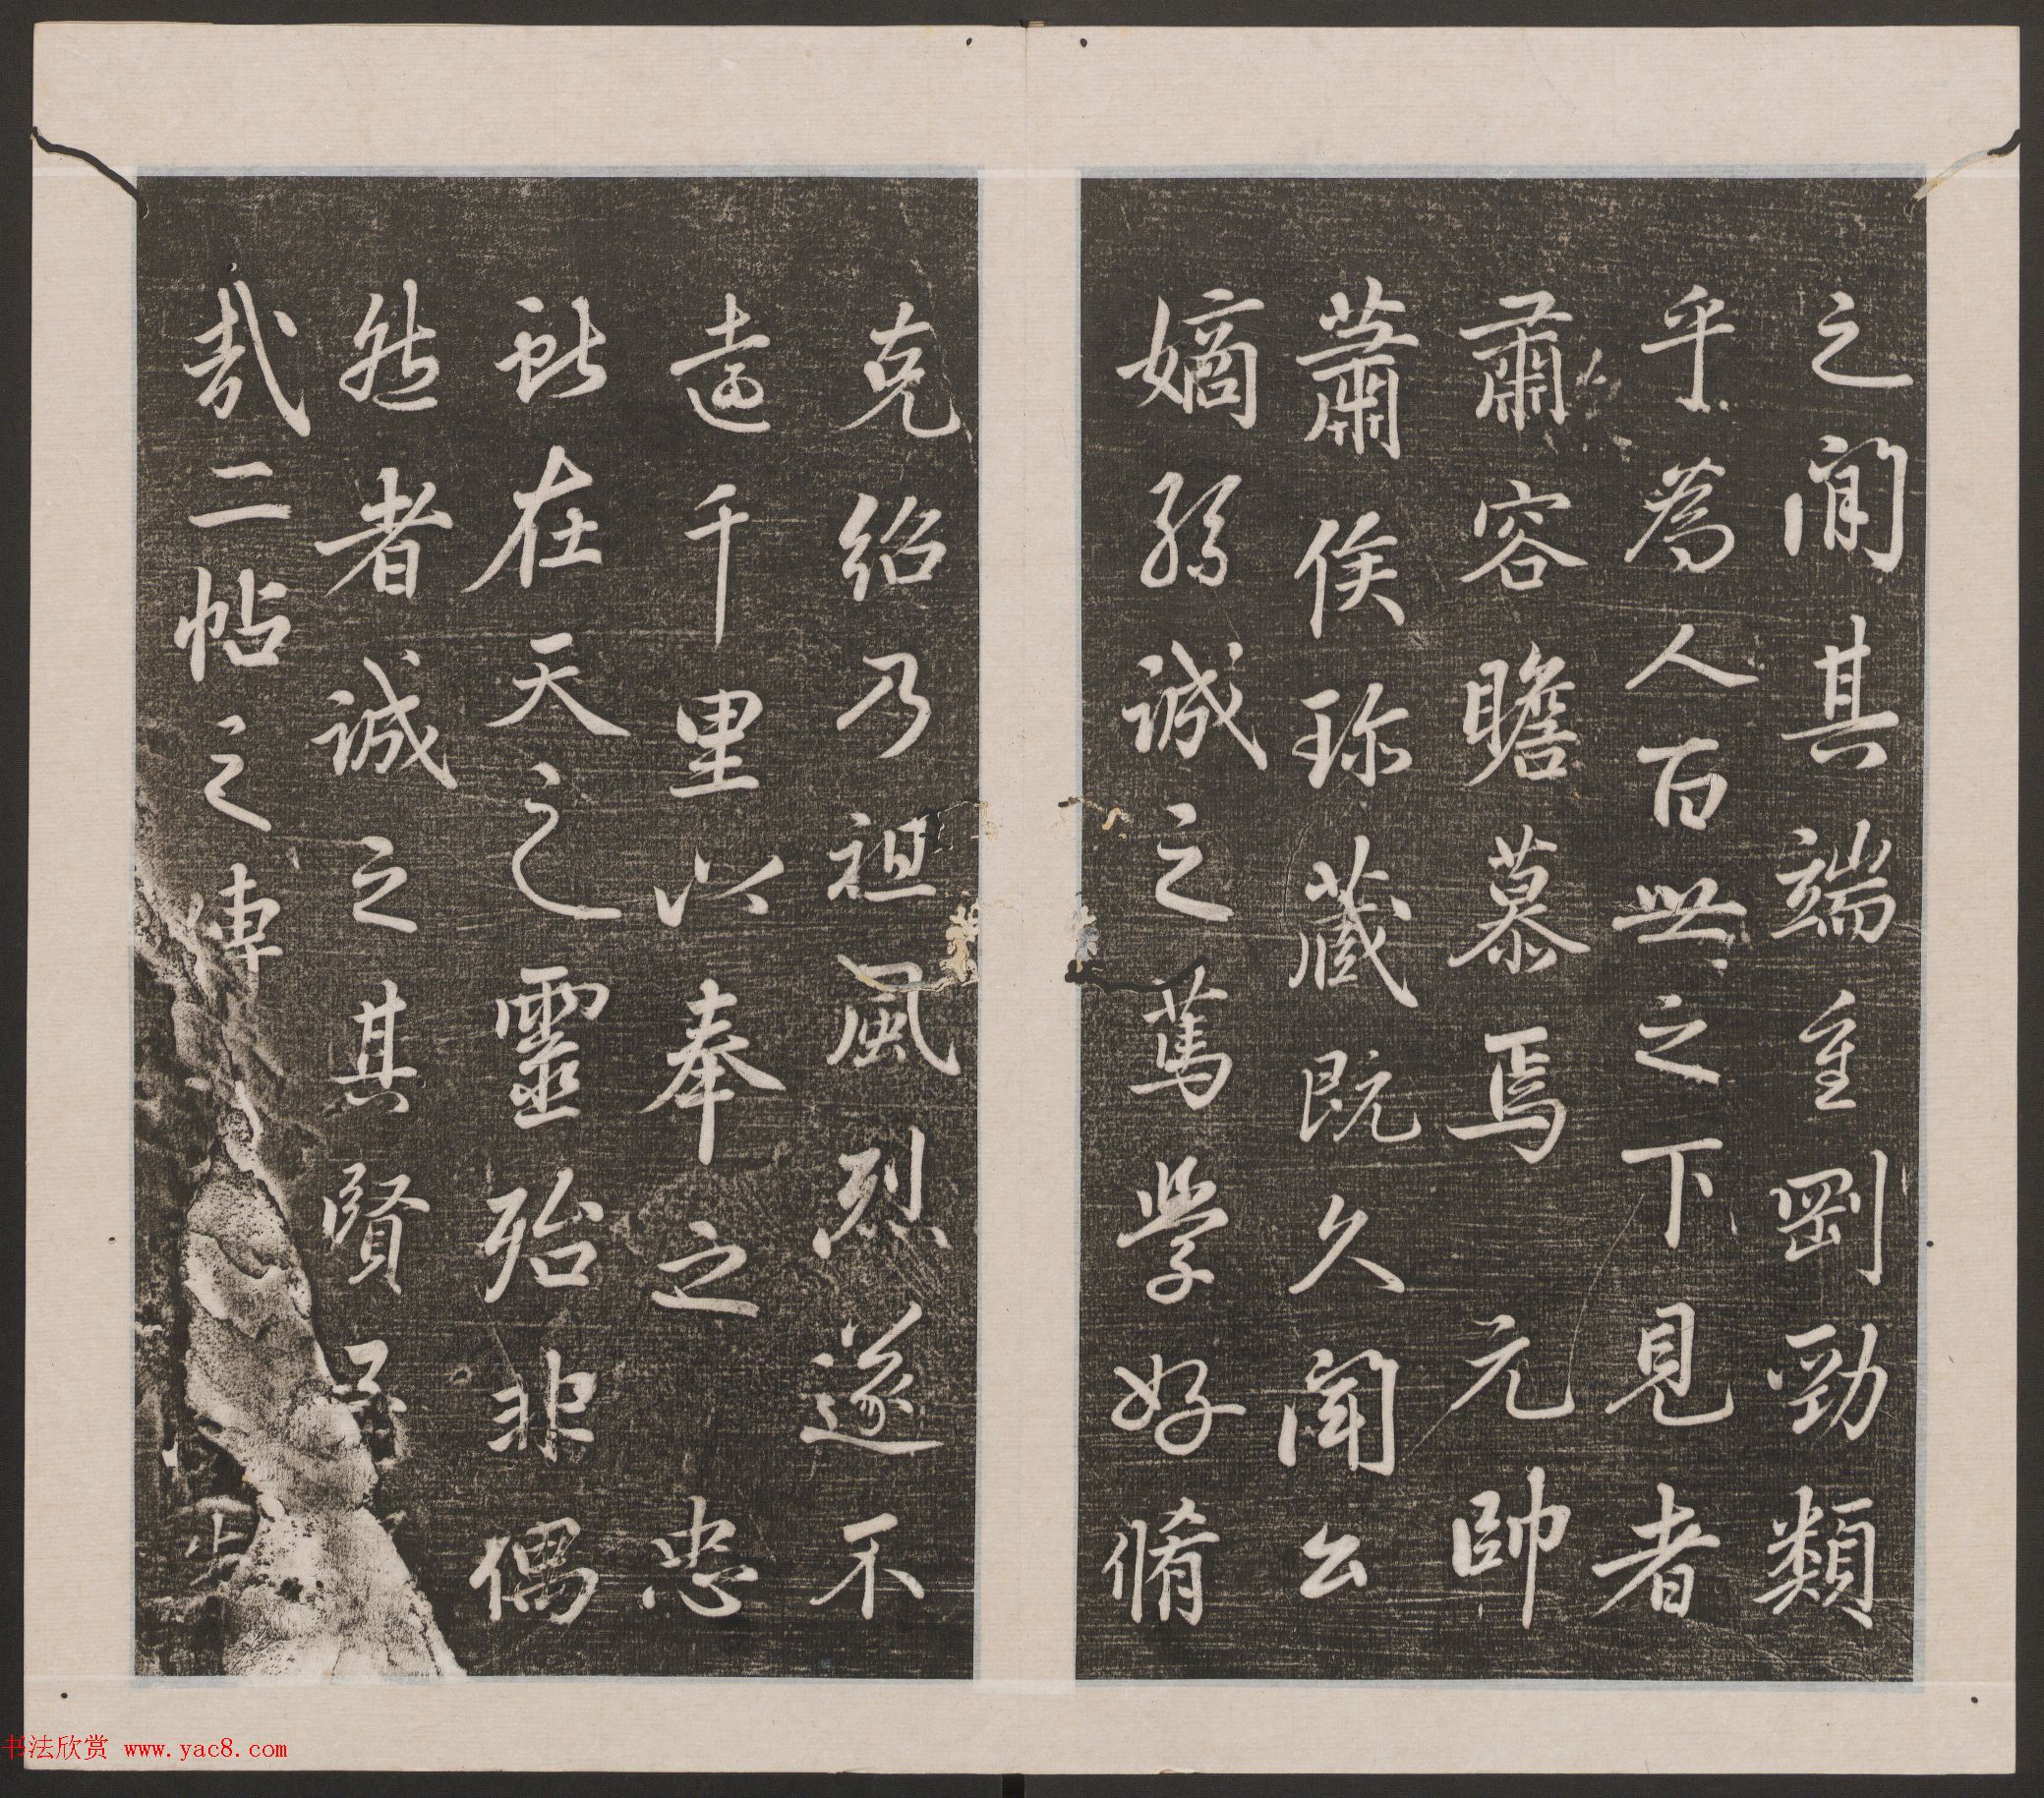 之閒其端重剛勁類
乎為人百世之下見者
肅容瞻慕焉元帥
蕭侯珎藏既久聞公
嫡孫誠之篤學好脩
克紹乃祖風烈遂不
遠千里以奉之忠
獻在天之靈殆非偶
然者誠之其賢乎
哉二帖之傳
书法欣赏 www.yac8.com